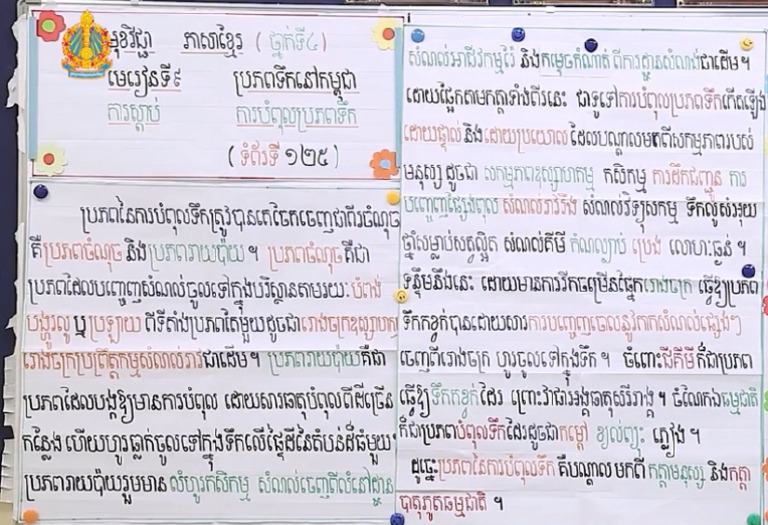 មុខវិជ្ជា ភាសាខ្មែរ ( ថ្នាក់ទី៤ )
មេរៀនទី៩ ប្រភពទឹកនៅកម្ពុជា
ការស្តាប់ ការបំពុលប្រភពទឹក
( ទំព័រទី ១២៥ )
ប្រភពនៃការបំពុលទឹកត្រូវបានគេចែកចេញជាពីរចំណុច
គឺប្រភពចំណុច និងប្រភពរាយប៉ាយ ។ ប្រភពចំណុចគឺជា
ប្រភពដែលបញ្ចេញសំណល់ចូលទៅក្នុងបរិស្ថានតាមរយៈបំពង់
បង្ហូរលូ ឬប្រឡាយ ពីទីតាំងប្រភពតែមួយដូចជារោងចក្រឧស្សាហកម្ម
រោងចក្រប្រព្រឹត្តកម្មសំណល់រាវជាដើម ។ ប្រភពរាយប៉ាយគឺជា
ប្រភពដែលបង្កឱ្យមានការបំពុល ដោយសារធាតុបំពុលពីដីច្រើន
កន្លែង ហើយហូរធ្លាក់ចូលទៅក្នុងទឹកលើផ្ទៃដីនៃតំបន់ដ៏ធំមួយ។
ប្រភពរាយប៉ាយរួមមាន លំហូរកសិកម្ម សំណល់ចេញពីលំនៅដ្ឋាន
សំណល់អាជីវកម្មរ៉ែ និងកម្ទេចកំណាត់ ពីការដ្ឋានសំណង់ជាដើម ។
ដោយផ្អែកតាមកត្តាទាំងពីរនេះ ជាទូទៅការបំពុលប្រភពទឹកកើតឡើង
ដោយផ្ទាល់ និងដោយប្រយោល ដែលបណ្តាលមកពីសកម្មភាពរបស់
មនុស្ស ដូចជា សកម្មភាពឧស្សាហកម្ម កសិកម្ម ការដឹកជញ្ជូន ការ
បញ្ចេញផ្សែងពុល សំណល់រាវរឹង សំណល់វិទ្យុសកម្ម ទឹកលូស៊ុអុយ
ថ្នាំសម្លាប់សត្វល្អិត សំណល់គីមី កំណល្បាប់ ប្រេង លោហៈធ្ងន់ ។
ទន្ទឹមនឹងនេះ ដោយមានការរីកចម្រើនផ្នែករោងចក្រ ធ្វើឱ្យប្រភព
ទឹកកខ្វក់បានដោយសារការបញ្ចេញចោលនូវកាកសំណល់ផ្សេងៗ
ចេញពីរោងចក្រ ហូរចូលទៅក្នុងទឹក ។ ចំពោះជីគីមីក៏ជាប្រភព
ធ្វើឱ្យទឹកកខ្វក់ដែរ ព្រោះវាជាអង្គធាតុសរីរាង្គ ។ ចំណែកឯធម្មជាតិ
ក៏ជាប្រភពបំពុលទឹកដែរដូចជាកម្តៅ ខ្យល់ព្យុះ ភ្លៀង ។
ដូច្នេះប្រភពនៃការបំពុលទឹក គឺបណ្តាលមកពី កត្តាមនុស្ស និងកត្តា
បាតុភូតធម្មជាតិ ។